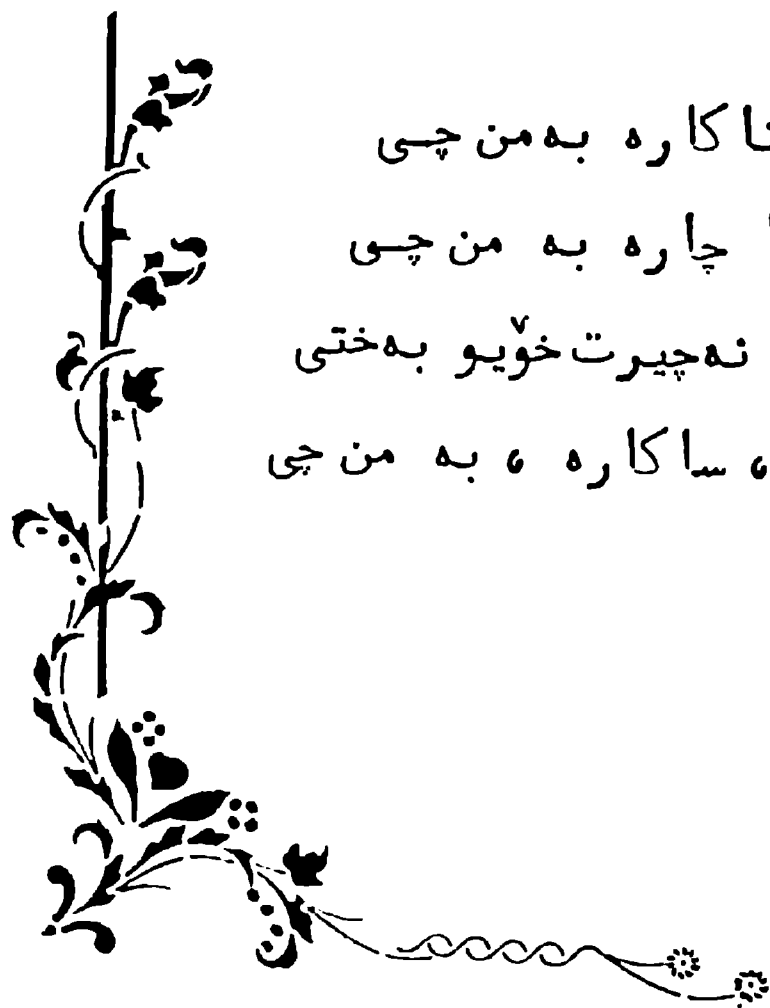 کارە بەمن چی
چارە بە من چی
نەچیرت خۆیو بەختی
، ساکارە ، بە من چی